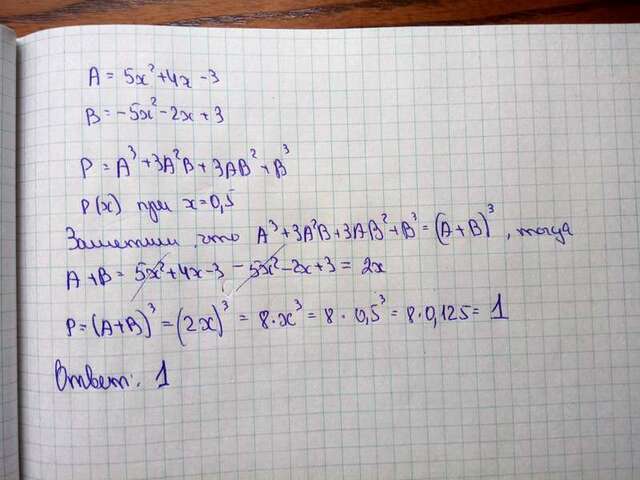 A = 5x² + 4x - 3
B = -5x² - 2x + 3
P = A³ + 3A²B + 3AB² + B³
P(x) при x = 0,5
Заметим, что A³ + 3A²B + 3AB² + B³ = (A + B)³, тогда
A + B = 5x² + 4x - 3 - 5x² - 2x + 3 = 2x
P = (A + B)³ = (2x)³ = 8 · x³ = 8 · 0,5³ = 8 · 0,125 = 1
Ответ: 1